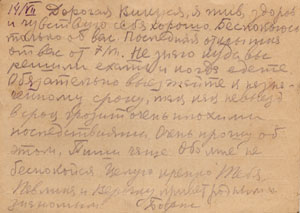 14/VII Дорогая Киися, я жив, здоров
и чувствую себя хорошо. Беспокоюсь
только об вас. Последняя открытка
от вас от 7/VII. Не знаю куда вы
решили ехать и когда едете.
Обязательно выезжайте к назна-
ченному сроку, так как невыезд
в срок грозит очень плохими
последствиями. Очень прошу об
этом. Пиши чаще. Обо мне не
беспокойся. Целую крепко Тебя,
и привет родным и
знакомым